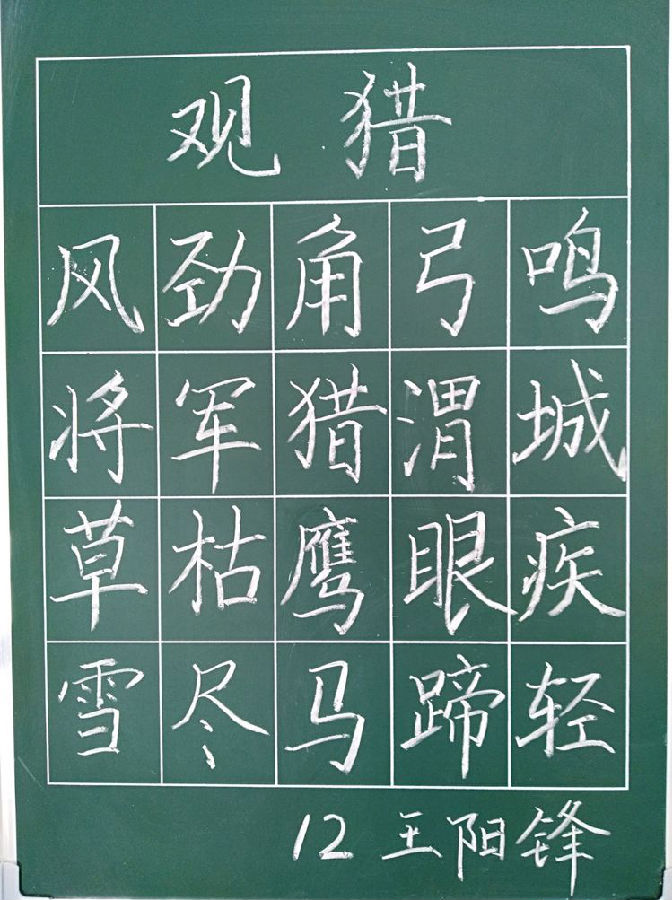 观猎
风劲角弓鸣
将军猎渭城
草枯鹰眼疾
雪尽马蹄轻
12 王阳锋